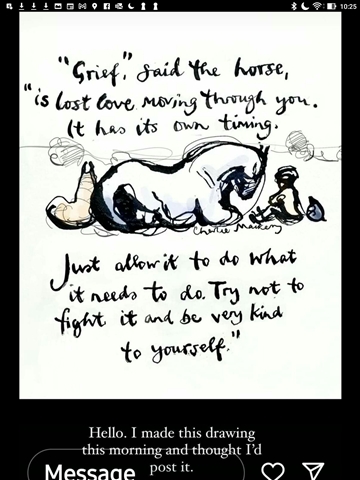 10:25
"Grief," said the horse,
"is lost love moving through you.
It has its own timing.
Charlie Mackesy
Just allow it to do what
it needs to do. Try not to
fight it and be very kind
to yourself."
Hello. I made this drawing
this morning and thought I'd
post it.
Message